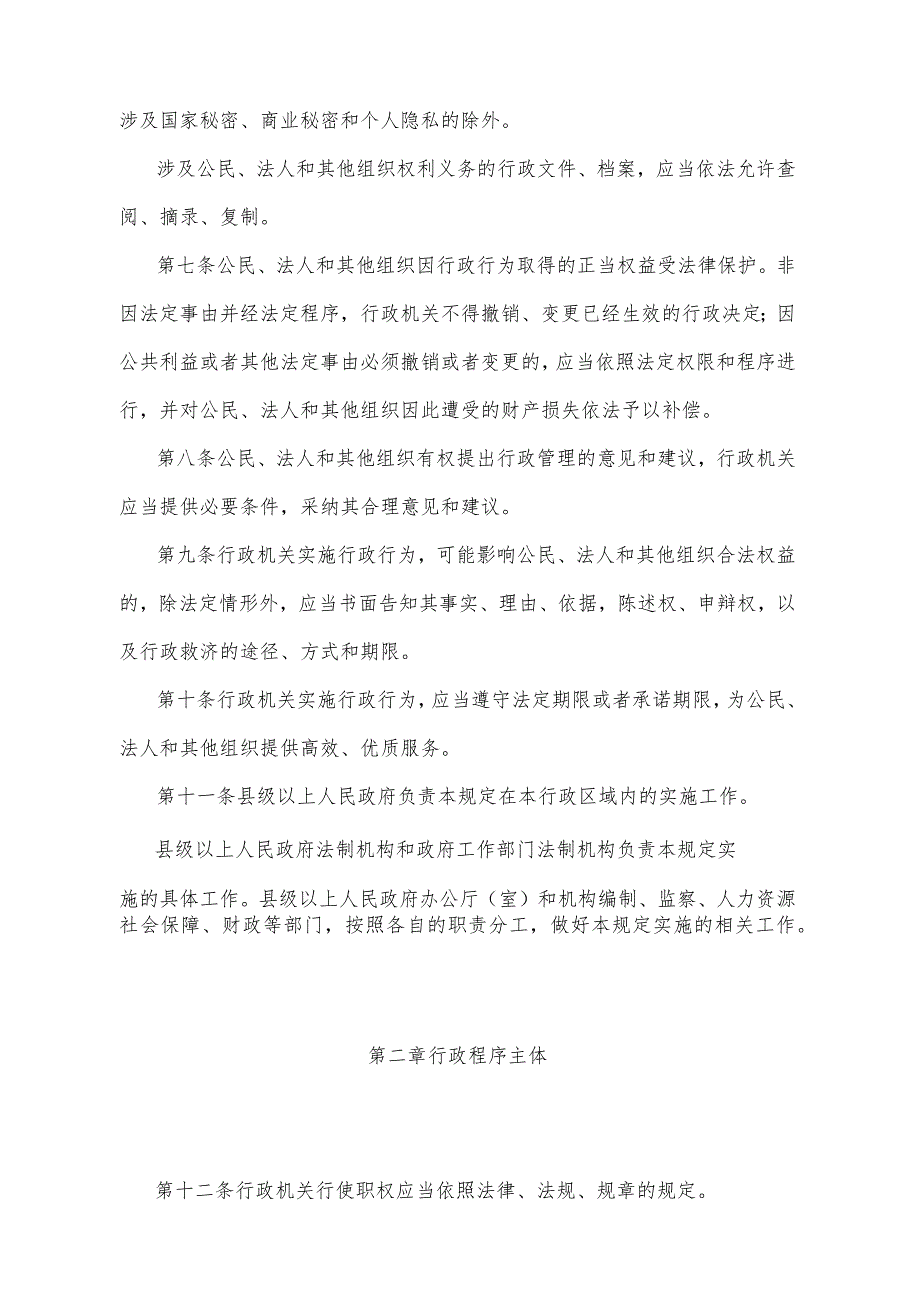 涉及国家秘密、商业秘密和个人隐私的除外。
涉及公民、法人和其他组织权利义务的行政文件、档案，应当依法允许查
阅、摘录、复制。
第七条公民、法人和其他组织因行政行为取得的正当权益受法律保护。非
因法定事由并经法定程序，行政机关不得撤销、变更已经生效的行政决定；因
公共利益或者其他法定事由必须撤销或者变更的，应当依照法定权限和程序进
行，并对公民、法人和其他组织因此遭受的财产损失依法予以补偿。
第八条公民、法人和其他组织有权提出行政管理的意见和建议，行政机关
应当提供必要条件，采纳其合理意见和建议。
第九条行政机关实施行政行为，可能影响公民、法人和其他组织合法权益
的，除法定情形外，应当书面告知其事实、理由、依据，陈述权、申辩权，以
及行政救济的途径、方式和期限。
第十条行政机关实施行政行为，应当遵守法定期限或者承诺期限，为公民、
法人和其他组织提供高效、优质服务。
第十一条县级以上人民政府负责本规定在本行政区域内的实施工作。
县级以上人民政府法制机构和政府工作部门法制机构负责本规定实
施的具体工作。县级以上人民政府办公厅（室）和机构编制、监察、人力资源
社会保障、财政等部门，按照各自的职责分工，做好本规定实施的相关工作。
第二章行政程序主体
第十二条行政机关行使职权应当依照法律、法规、规章的规定。